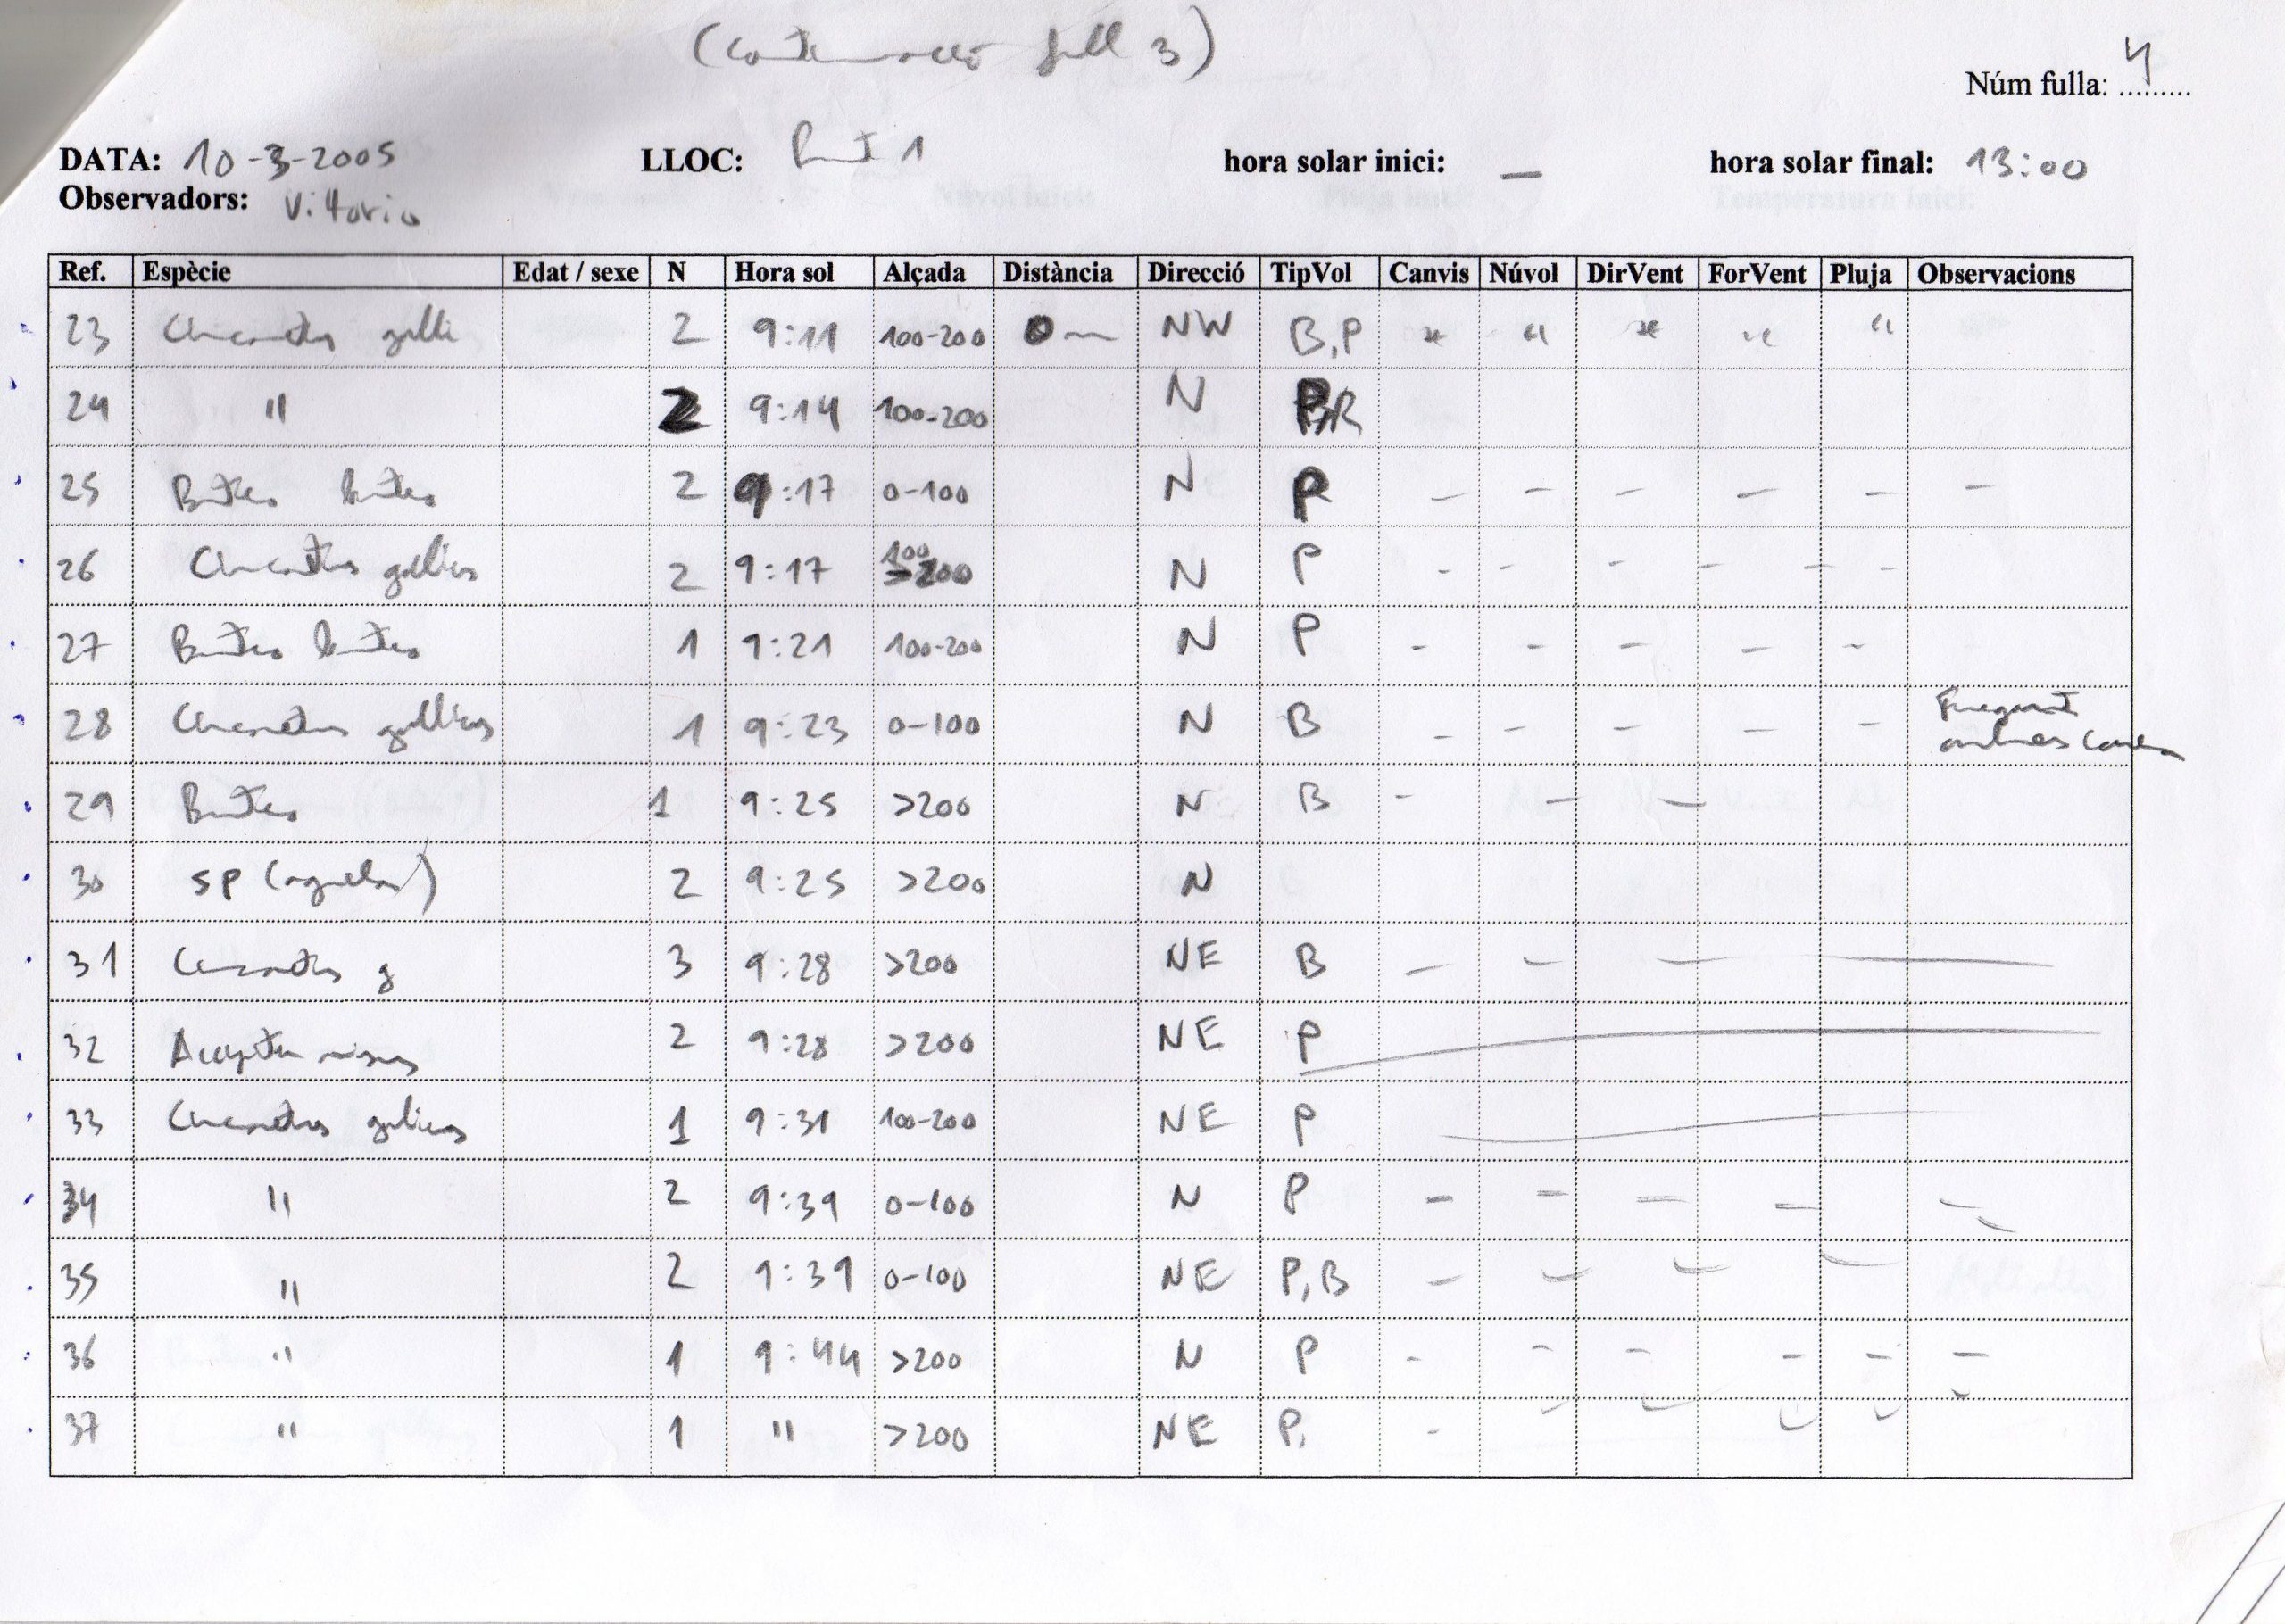 (Continuació full 3)
Núm fulla: 4
DATA: 10-3-2005 LLOC: Punt 1 hora solar inici: — hora solar final: 13:00
Observadors: Vittorio
Ref. Espècie Edat / sexe N Hora sol Alçada Distància Direcció TipVol Canvis Núvol DirVent ForVent Pluja Observacions
23 Circaetus galli 2 9:11 100-200 0 — NW B,P " " " " "
24 " 2 9:14 100-200 N
25 Buteo buteo 2 9:17 0-100 N P - - - - - -
26 Circaetus gallicus 2 9:17 100 200 N P - - - - - -
27 Buteo buteo 1 9:21 100-200 N P - - - - -
28 Circaetus gallicus 1 9:23 0-100 N B - - - - -
29 Buteo 1 9:25 >200 N B - - -
30 sp 2 9:25 >200 N
31 Circaetus g 3 9:28 >200 NE B - - - —
32 Accipiter nisus 2 9:28 >200 NE P —
33 Circaetus gallicus 1 9:31 100-200 NE P —
34 " 2 9:39 0-100 N P - - - - - -
35 " 2 9:39 0-100 NE P,B - - - -
36 " 1 9:44 >200 N P - - - - - -
37 " 1 " >200 NE P, - - - - -